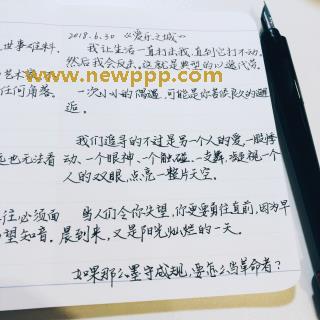 2018.6.30 《爱乐之城》
我让生活一直打击我,直到它打不动,
然后我会反击。这就是典型的以逸代劳。
一次小小的偶遇,可能是你苦候良久的邂
逅。
我们追寻的不过是另一个人的爱,一股悸
动、一个眼神、一个触碰、一支舞,凝视一个
人的双眼,点亮一整片天空。
当人们令你失望,你更要勇往直前,因为早
晨到来,又是阳光灿烂的一天。
如果那么墨守成规,要怎么当革命者?
世事难料.
艺术
任何角落.
远也无法看
往必须面
望知音.
www.newppp.com